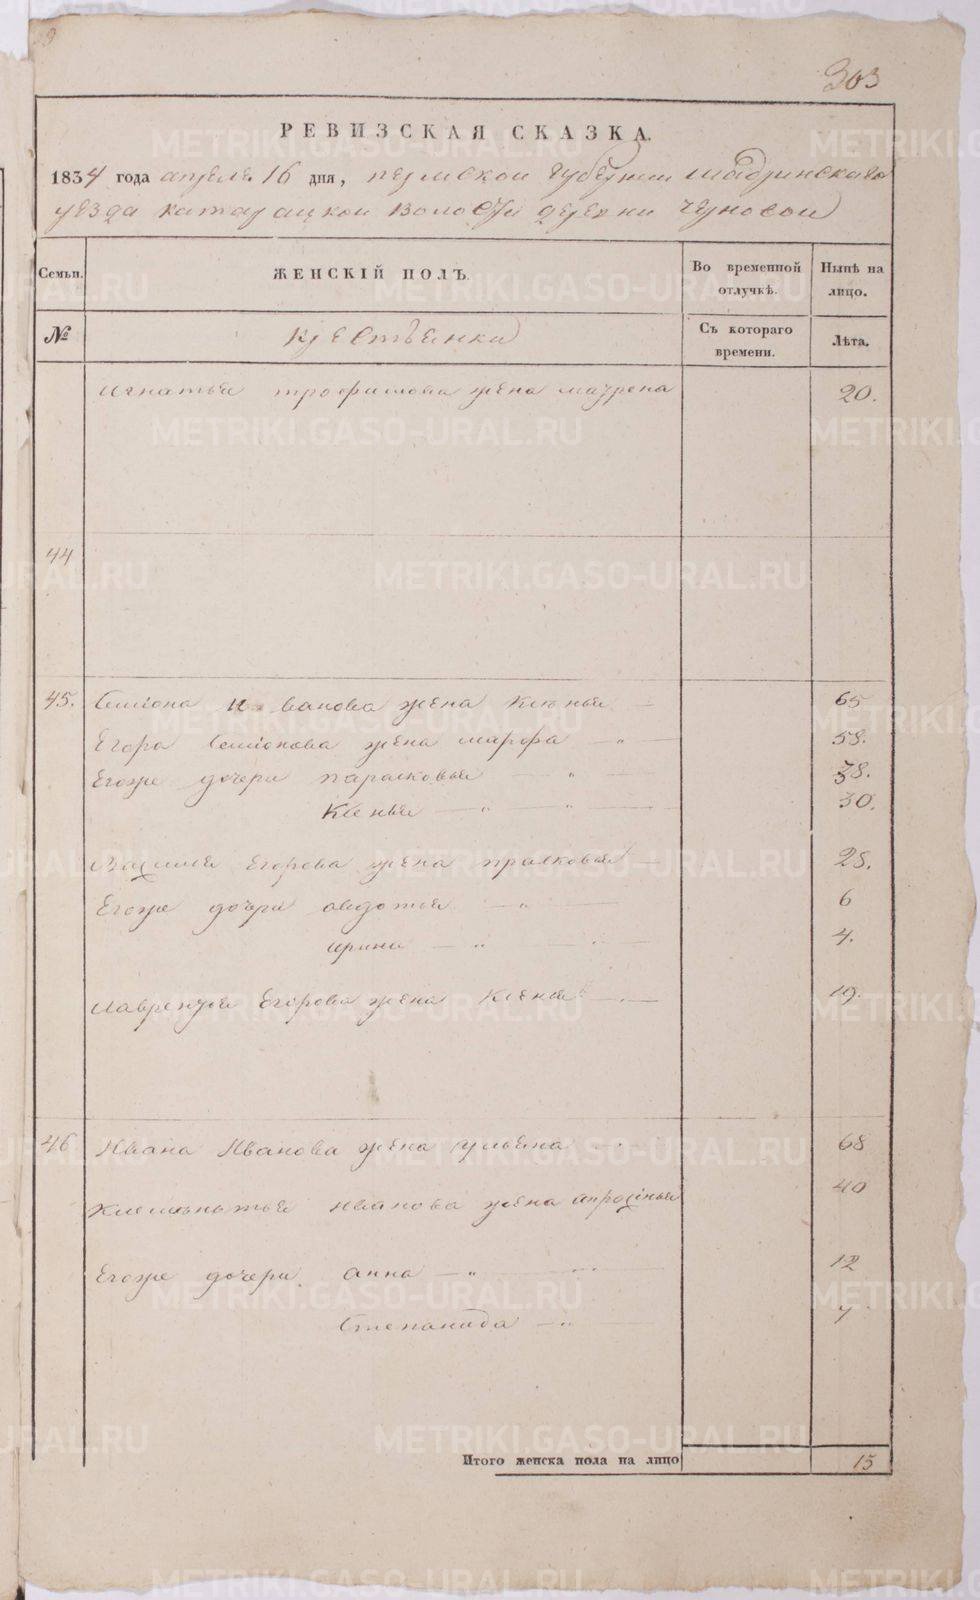 303
РЕВИЗСКАЯ СКАЗКА.
1834 года апреля 16 дня, пермской губернии шадринскаго
уезда катарацкой волости деревни черновой
Семьи. ЖЕНСКІЙ ПОЛЪ. Во временной отлучкѣ. Нынѣ на лицо.
№ крестьенки Съ котораго времени. Лѣта.
игнатья трофимова жена маѵрена 20.
44
45. Семіона ивановa жена Ксенья 65
Егора Семіонова жена марфа — „ — 58.
Егоже дочери парасковья — „ — 38.
Ксенья — „ — „ — 30.
Василья Егорова жена прасковья — 28.
Егоже дочери авдотья — „ — 6
ирина — „ — „ — 4.
лаврентья Егорова жена Ксенья — „ — 19.
46 Ивана Иванова жена ульена „ 68
климентья иванова жена апросінья 40
Егоже дочери анна — „ — „ — 12
Степанида — „ — 7
Итого женска пола на лицо 15
METRIKI.GASO-URAL.RU